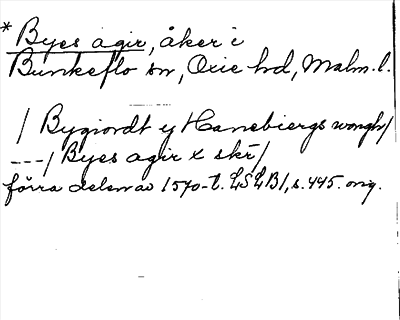 * Byes agir, åker i
Bunkeflo sn, Oxie hd, Malm. l.
/ Bygiordt y Hanebiergs wongh/
---/ Byes agir x skr/
förra delen av 1570-t. LSLB1, s. 445. orig.